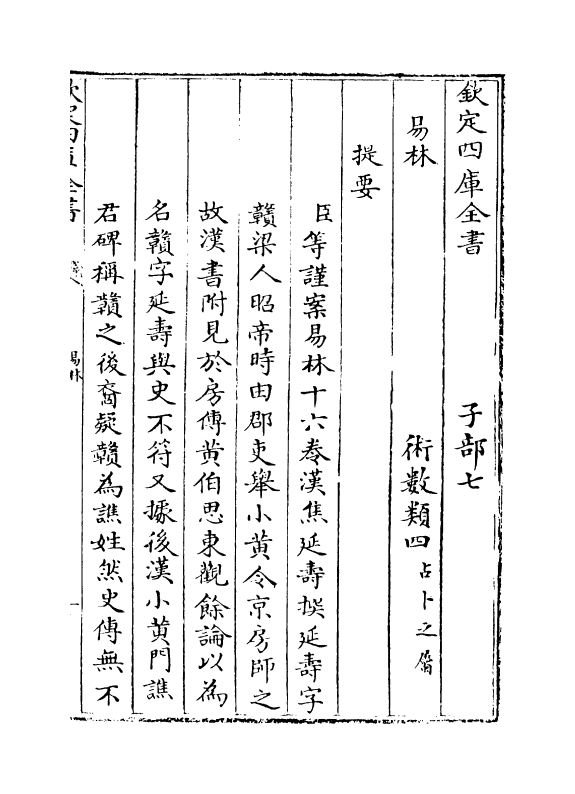 欽定四庫全書　子部七
易林　術數類四占卜之屬
提要
臣等謹案易林十六卷漢焦延壽撰延壽字
贛梁人昭帝時由郡吏舉小黃令京房師之
故漢書附見於房傳黃伯思東觀餘論以為
名贛字延壽與史不符又據後漢小黃門譙
君碑稱贛之後裔疑贛為譙姓然史傳無不
欽定四庫全書　易林　一